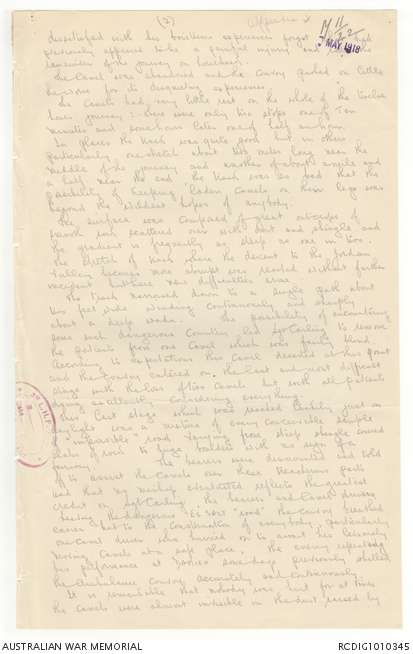 (2)
5 MAY 1918
dissatisfied with his perilous experiences forgot had
previously appeared to be a painful injury and the
remainder of the journey on horseback.
The Camel was abandoned and the Convoy pushed on little
the worse for its disquieting experiences.
The Camels had very little rest on the whole of the twelve
hour journey: there were only two stops one of Ten
minutes and some hours later one of half an hour.
In places the track was quite good but in others
particularly one stretch about two miles long near the
middle of the journey and another of about a mile and
a half near the end the track was so bad that the
possibility of keeping laden Camels on their legs was
beyond the wildest hopes of anybody.
The surface was composed of great outcrops of
smooth rock scattered over with dirt and shingle and
the gradient is frequently as steep as one in two.
The stretch of track where the descent to the Jordan
Valley becomes more abrupt was reached without further
accident but there new difficulties arose.
The track narrowed down to a single path about
two feet wide winding continuously and steeply
about a deep wadi. The possibility of encountering
some such dangerous country led Sgt Carling to remove
the patients from one Camel which was partly blind.
According to expectations this Camel deserted at this point
and the Convoy entered on the last and most difficult
stage with the loss of two Camels but with all patients
doing excellently considering everything.
This last stage which was reached luckily just on
daylight was a mixture of every conceivable sample
of "impassible" road varying from steep shingle covered
slabs of rock to huge boulders with no sign of a
causeway. The bearers were dismounted and told
off to assist the Camels over these treacherous parts
and that no mishap eventuated reflects the greatest
credit on Sgt Carling the bearers and Camel drivers
Leaving the dangerous "Es Salt" road the Convoy reached
easier but to the consternation of everybody, particularly
one Camel driver who hurried on to assist his leisurely
moving Camels to a safe place, the enemy repeated
his performance at some days previously shelled
the Ambulance Convoy accurately and continuously.
It is remarkable that nobody was hurt for at times
the Camels were almost invisible in the dust raised by
AUSTRALIAN WAR MEMORIAL
RCDIG1010345